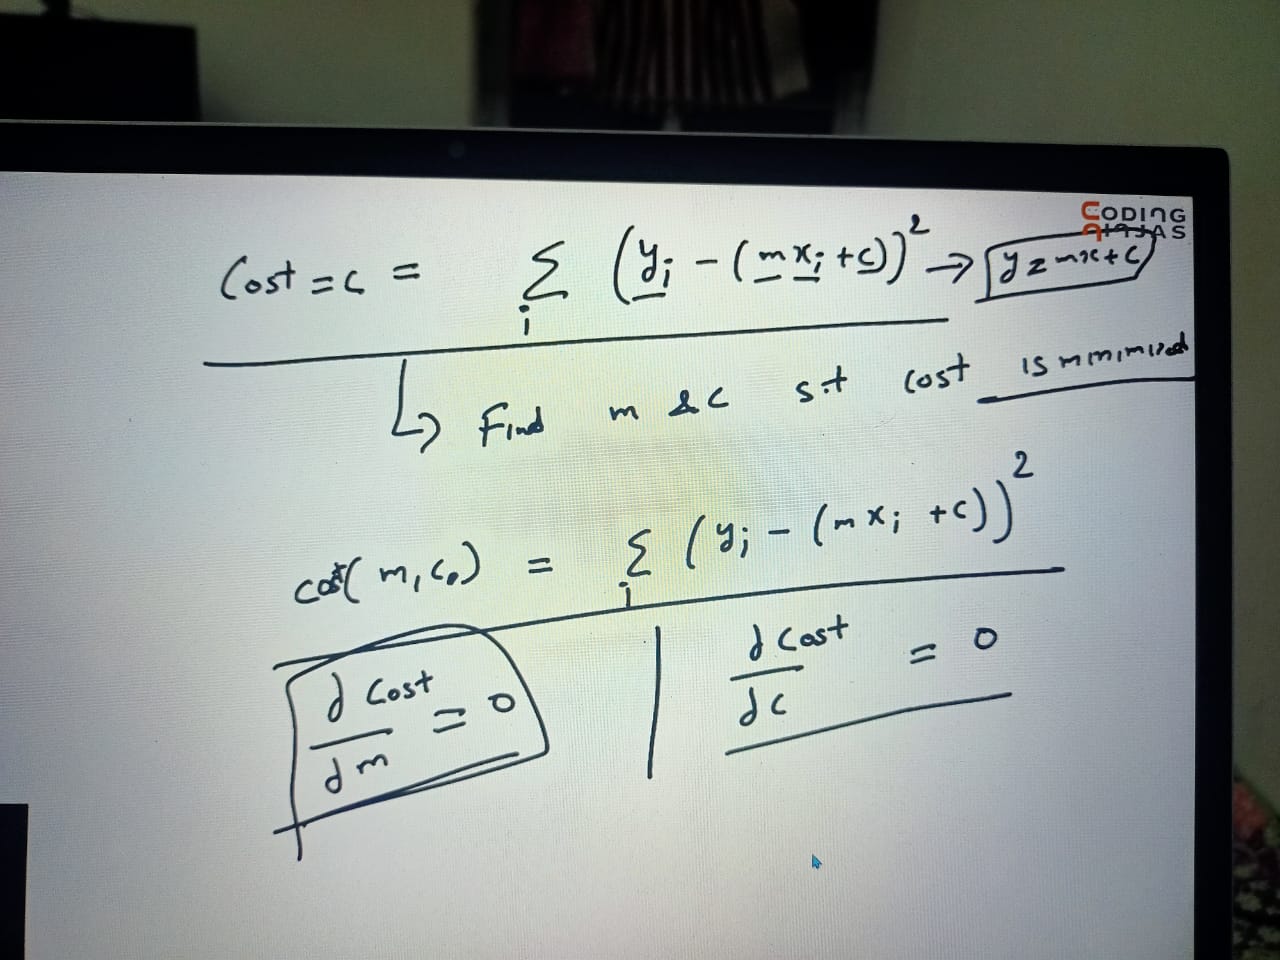 CODING
NINJAS
Cost = c = Σ i (yi - (mxi + c))² → y = mx + c
↳ Find m & c s.t cost is minimized
cost(m, c) = Σ i (yi - (mxi + c))²
d Cost / dm = 0 | d Cost / dc = 0